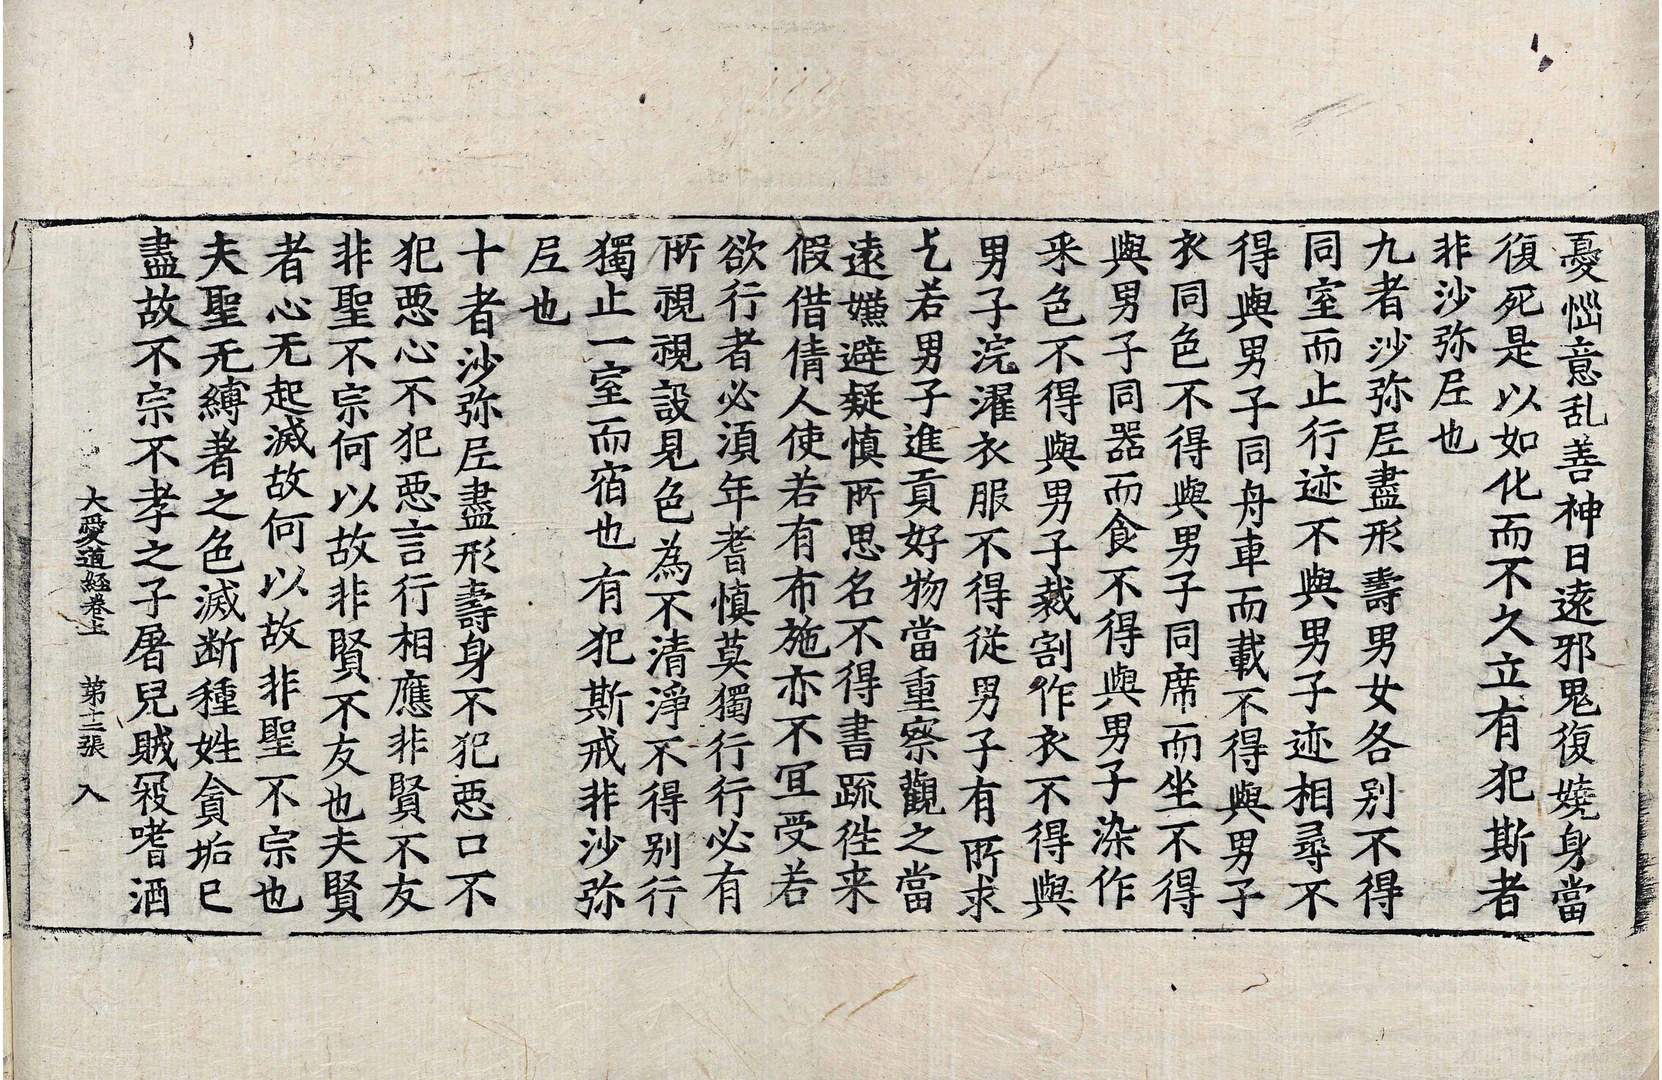 憂惱意乱善神日遠邪鬼復嬈身當
復死是以如化而不久立有犯斯者
非沙弥𡰱也
九者沙弥𡰱盡形壽男女各别不得
同室而止行迹不與男子迹相尋不
得與男子同舟車而載不得與男子
衣同色不得與男子同席而坐不得
與男子同器而食不得與男子染作
采色不得與男子裁割作衣不得與
男子浣濯衣服不得從男子有所求
乞若男子進貢好物當重察觀之當
遠嫌避疑慎所思名不得書䟽往来
假借倩人使若有布施亦不冝受若
欲行者必湏年耆慎莫獨行行必有
所視視設見色為不清淨不得别行
獨止一室而宿也有犯斯戒非沙弥
𡰱也
十者沙弥𡰱盡形壽身不犯惡口不
犯惡心不犯惡言行相應非賢不友
非聖不宗何以故非賢不友也夫賢
者心无起滅故何以故非聖不宗也
夫聖无縛著之色滅断種姓貪垢已
盡故不宗不孝之子屠兒賊㓂嗜酒
大愛道經卷上 第十二張 入